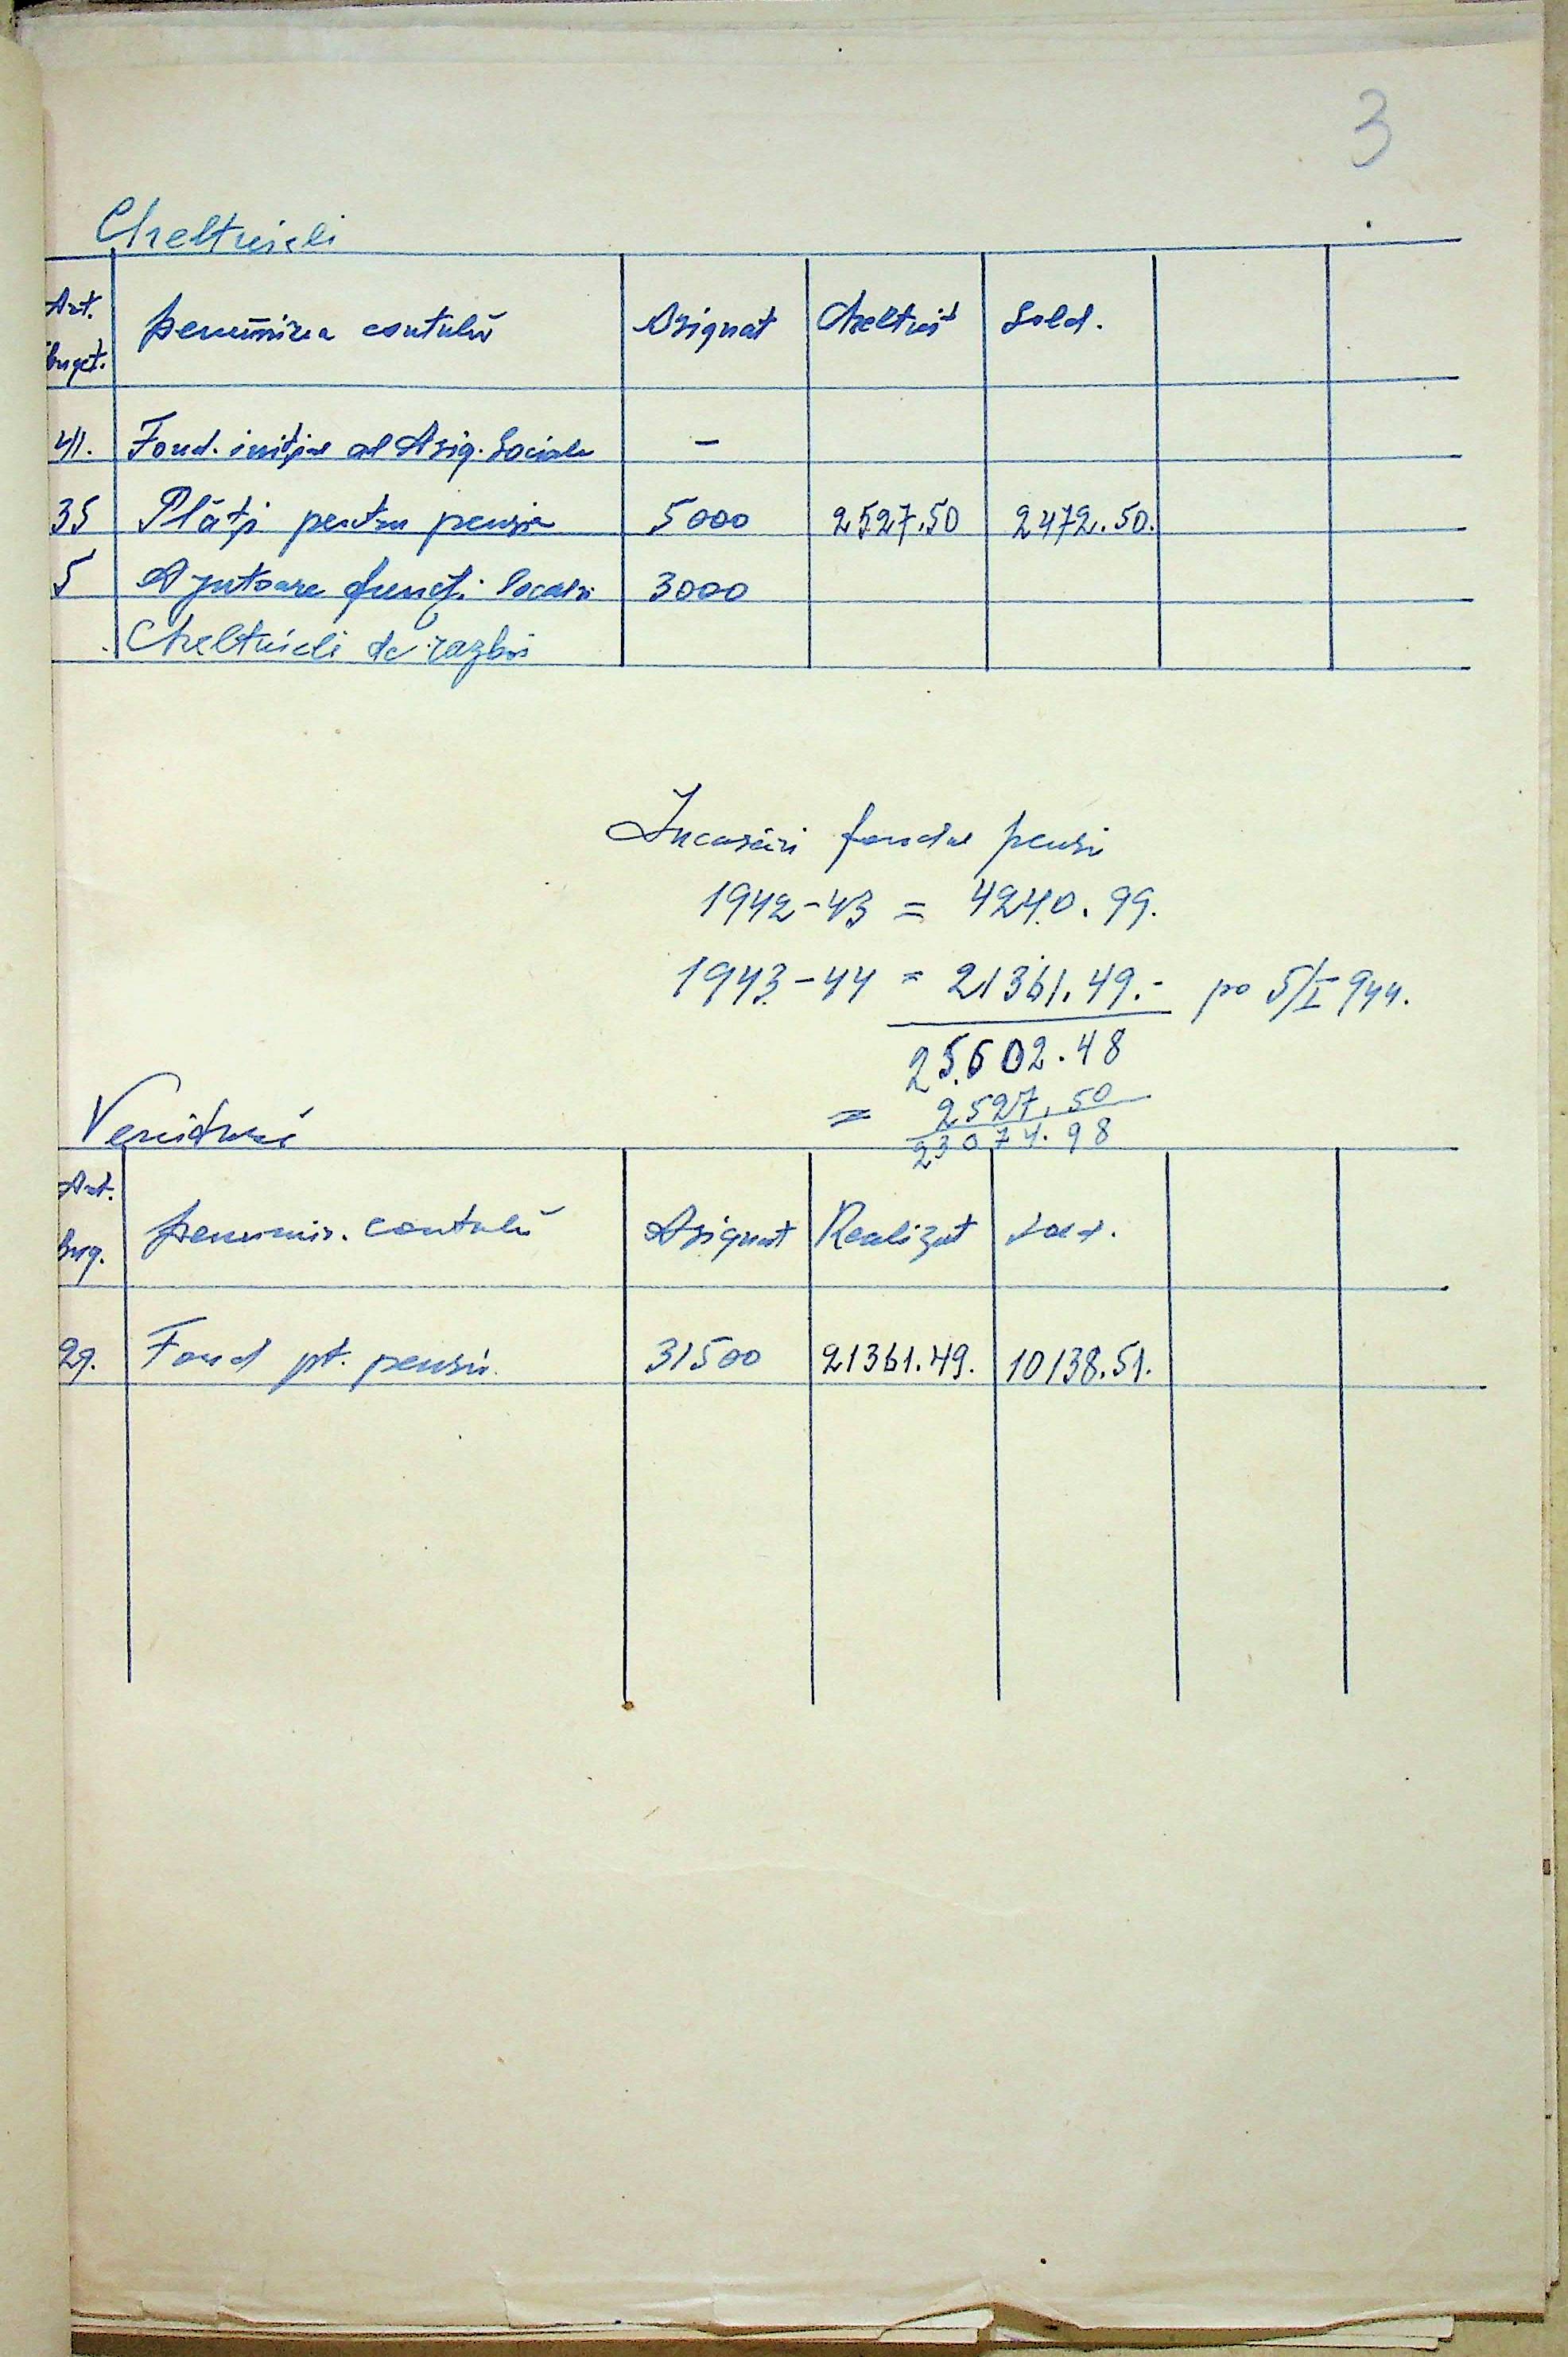 3
Cheltuieli
Art. buget. Denumirea contului Asignat Cheltuit Sold.
41. Fond. inițial al Asig. Sociale –
35 Plăți pentru pensie 5000 2527.50 2472.50.
5 Ajutoare funcț. locali 3000
Cheltuieli de razboi
Incasări fondul pensii
1942-43 = 4240.99.
1943-44 = 21361.49.- po 5/I 944.
25.602.48
= 2527.50
23074.98
Venituri
Art. bug. Denumir. contului Asignat Realizat Sold.
29. Fond pt. pensii. 31500 21361.49. 10138.51.